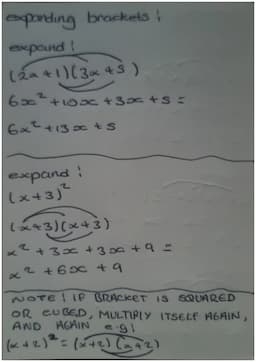 expanding brackets :
expand :
(2x+1)(3x+5)
6x² +10x +3x +5 =
6x² +13x +5
expand :
(x+3)²
(x+3)(x+3)
x² +3x +3x +9 =
x² +6x +9
NOTE : IF BRACKET IS SQUARED
OR CUBED, MULTIPLY ITSELF AGAIN,
AND AGAIN e.g:
(x+2)² = (x+2)(x+2)